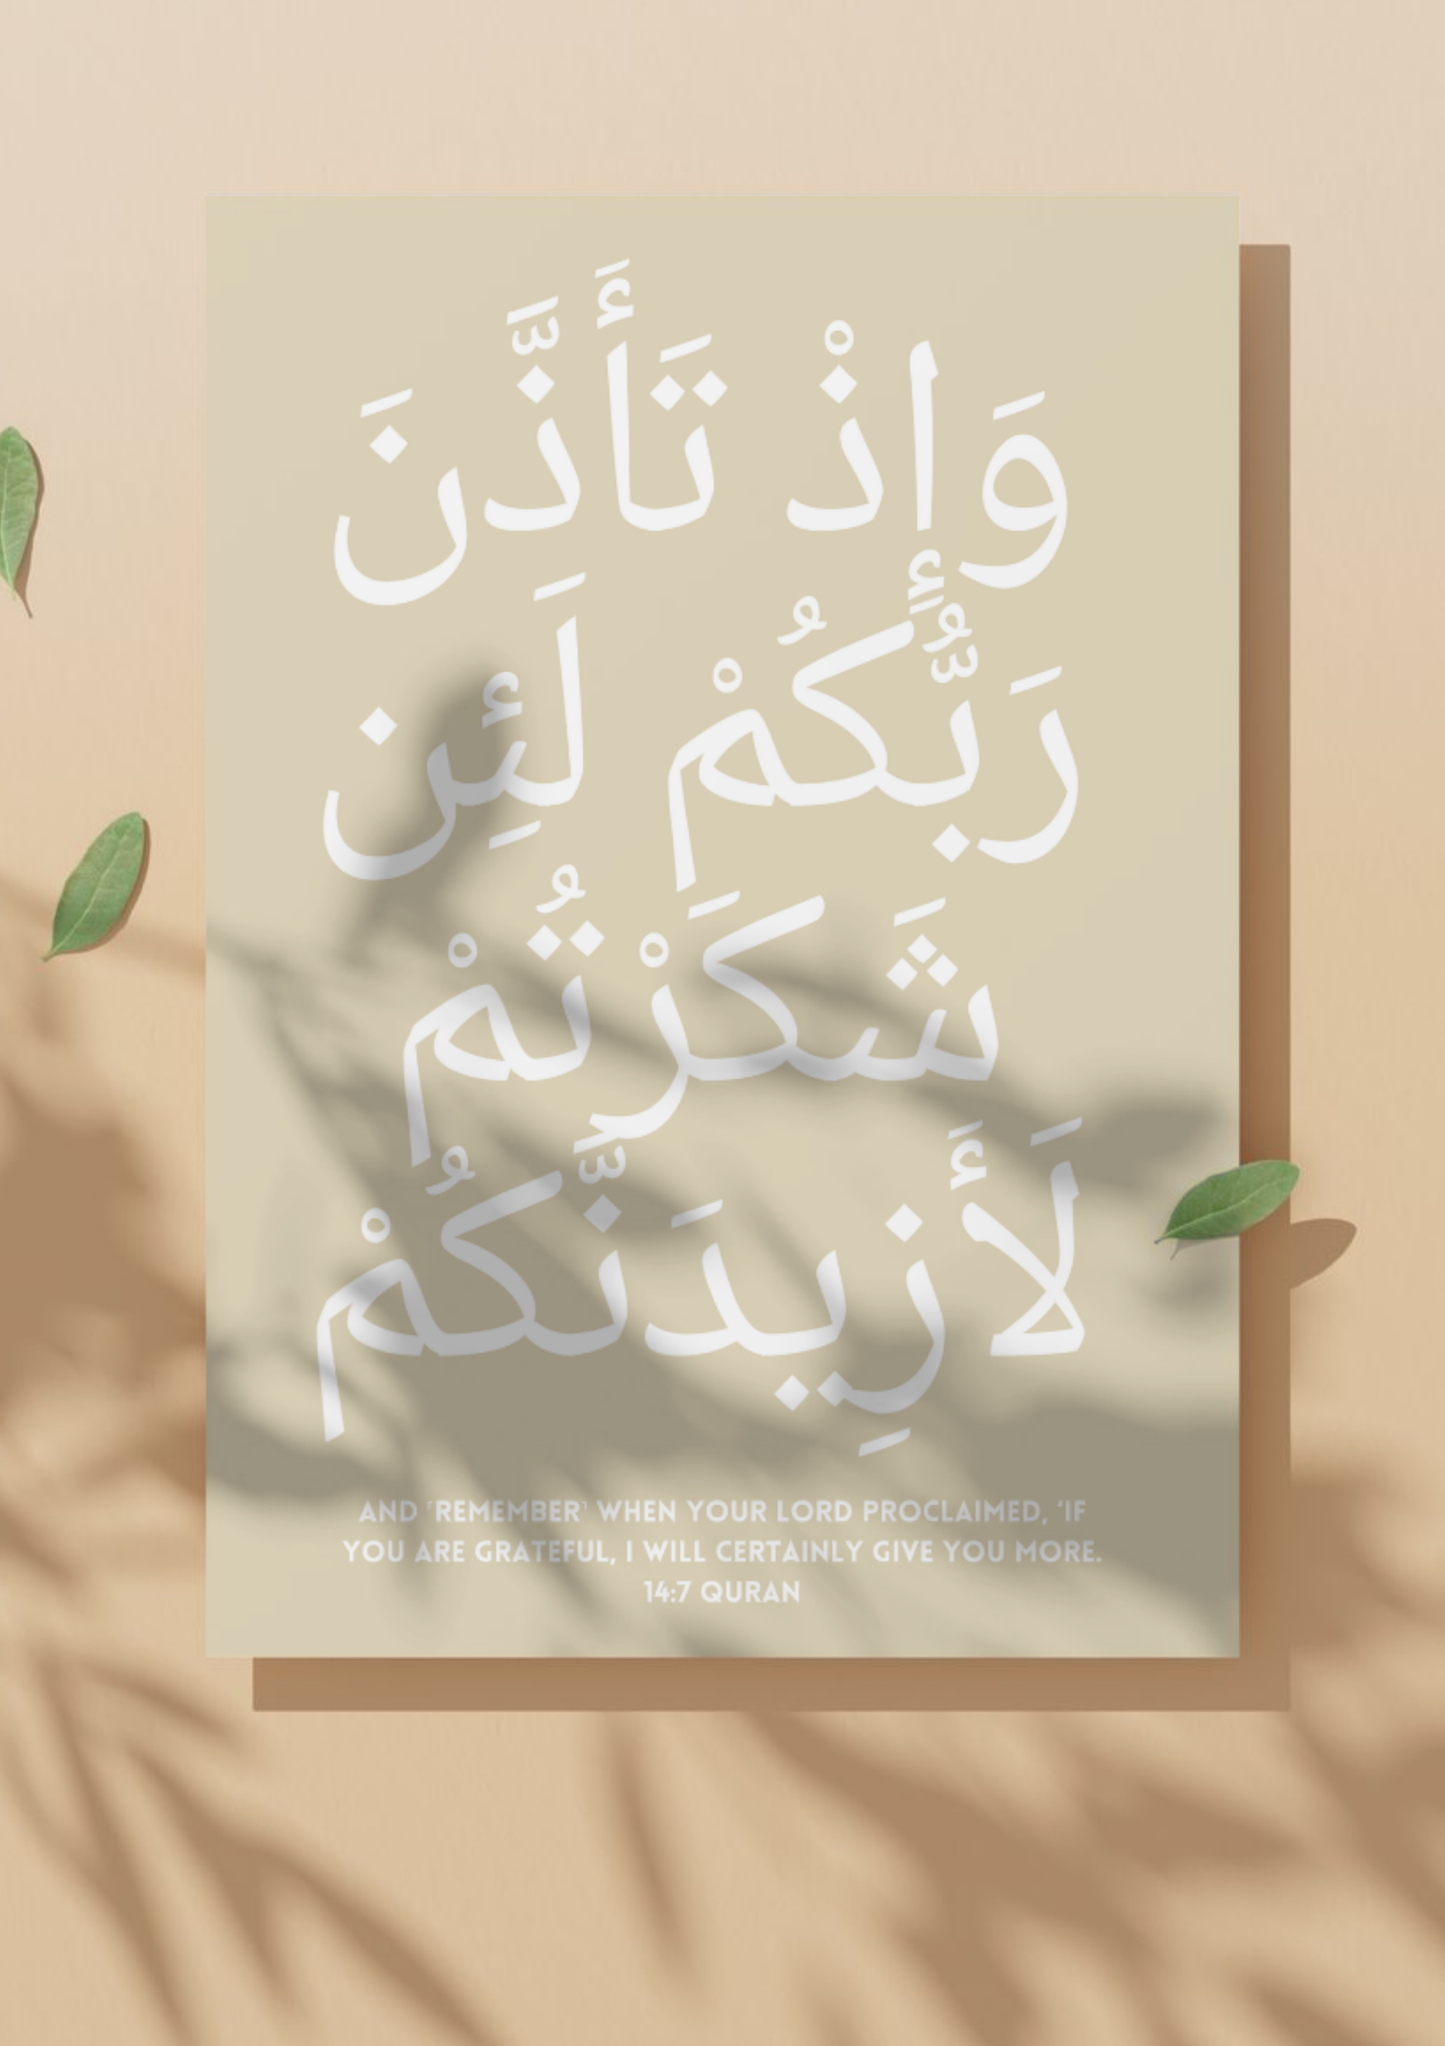 وَإِذْ تَأَذَّنَ
رَبُّكُمْ لَئِن
شَكَرْتُمْ
لَأَزِيدَنَّكُمْ
AND ˹REMEMBER˺ WHEN YOUR LORD PROCLAIMED, ‘IF
YOU ARE GRATEFUL, I WILL CERTAINLY GIVE YOU MORE.
14:7 QURAN